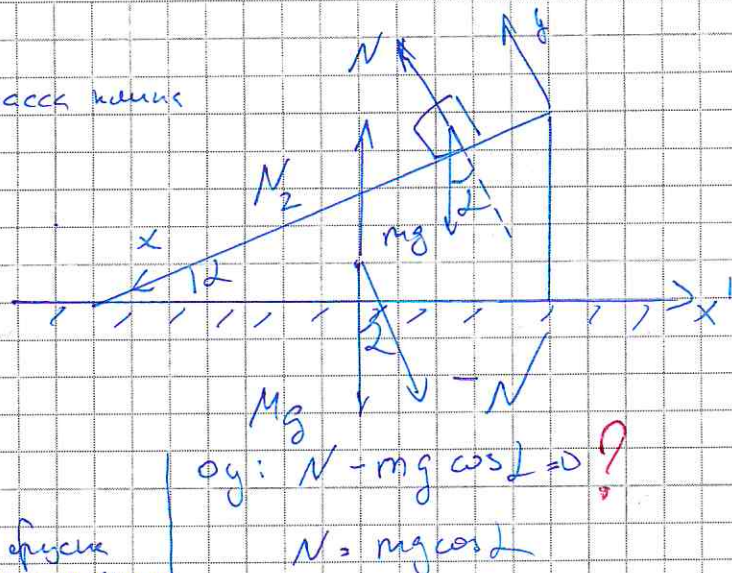 N y
асса клина
N₂
x α mg α
x'
α
Mg -N
oy: N - mg cosα = 0 ?
бруска N = mg cosα